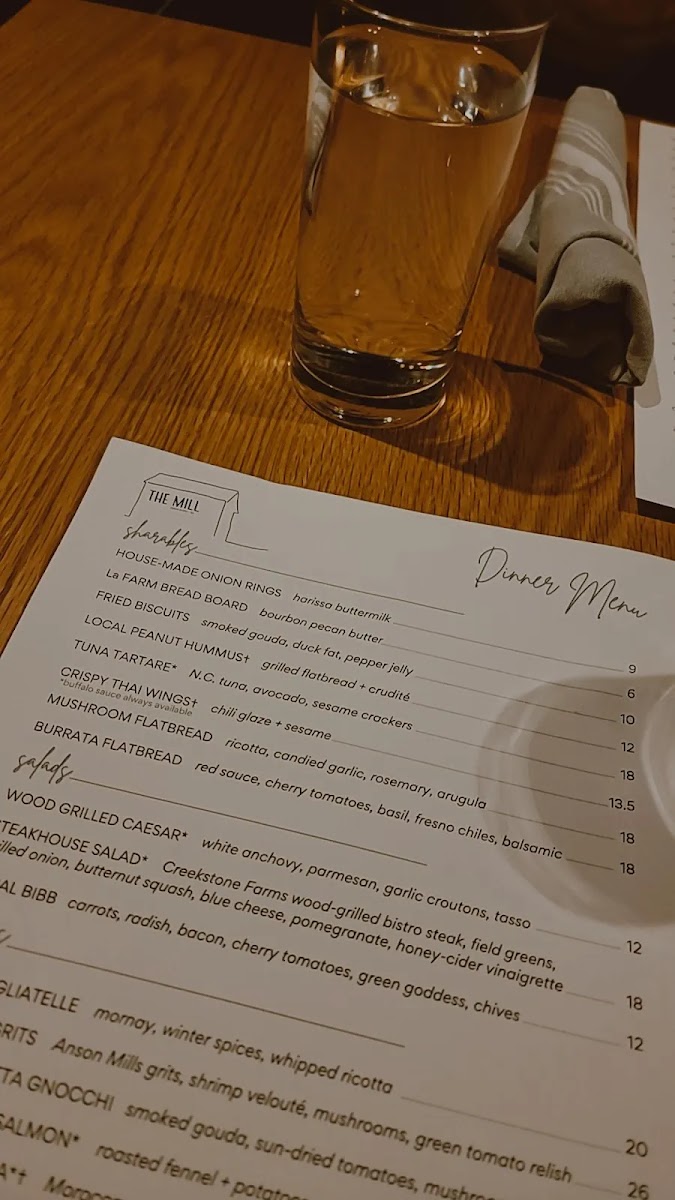 THE MILL
Dinner Menu
sharables
HOUSE-MADE ONION RINGS harissa buttermilk 9
La FARM BREAD BOARD bourbon pecan butter 6
FRIED BISCUITS smoked gouda, duck fat, pepper jelly 10
LOCAL PEANUT HUMMUS† grilled flatbread + crudité 12
TUNA TARTARE* N.C. tuna, avocado, sesame crackers 18
CRISPY THAI WINGS† chili glaze + sesame 13.5
*buffalo sauce always available
MUSHROOM FLATBREAD ricotta, candied garlic, rosemary, arugula 18
BURRATA FLATBREAD red sauce, cherry tomatoes, basil, fresno chiles, balsamic 18
salads
WOOD GRILLED CAESAR* white anchovy, parmesan, garlic croutons, tasso 12
TEAKHOUSE SALAD* Creekstone Farms wood-grilled bistro steak, field greens,
illed onion, butternut squash, blue cheese, pomegranate, honey-cider vinaigrette 18
AL BIBB carrots, radish, bacon, cherry tomatoes, green goddess, chives 12
GLIATELLE mornay, winter spices, whipped ricotta 20
GRITS Anson Mills grits, shrimp velouté, mushrooms, green tomato relish 26
TA GNOCCHI smoked gouda, sun-dried tomatoes, mushro
SALMON* roasted fennel + potato
A*†